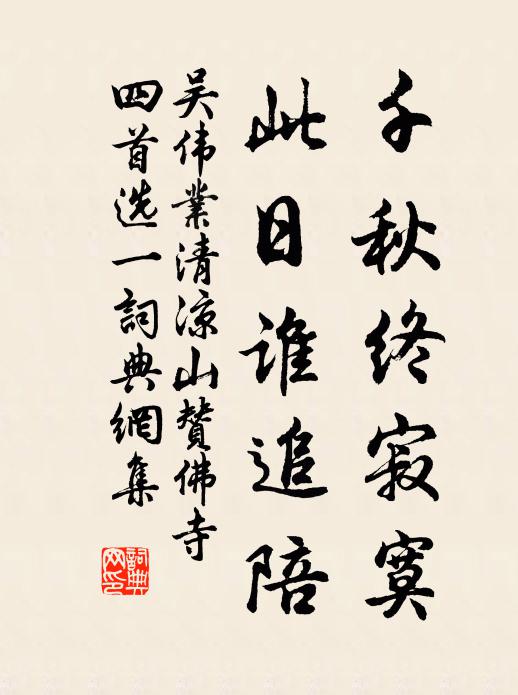 千秋终寂寞
此日谁追陪
吴伟業清凉山赞佛寺
四首选一詞典網集
詞典
网印